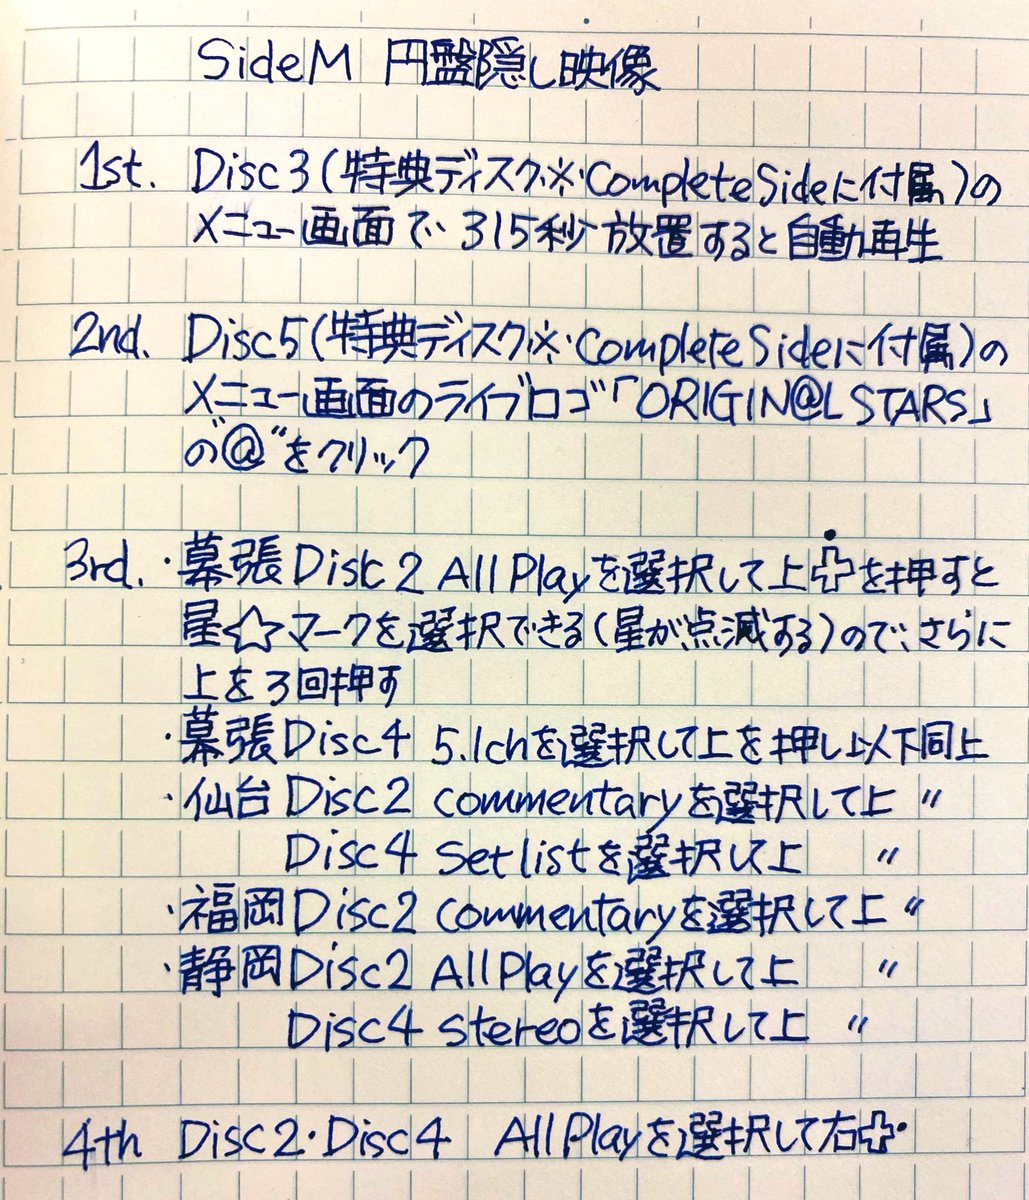 SideM 円盤隠し映像
1st. Disc3(特典ディスク※CompleteSideに付属)の
メニュー画面で315秒放置すると自動再生
2nd. Disc5(特典ディスク※CompleteSideに付属)の
メニュー画面のライブロゴ「ORIGIN@L STARS」
の"@"をクリック
3rd. ・幕張Disc2 All Playを選択して上✚を押すと
星☆マークを選択できる(星が点滅する)ので、さらに
上を3回押す
・幕張Disc4 5.1chを選択して上を押し以下同上
・仙台Disc2 commentaryを選択して上 〃
Disc4 Setlistを選択して上 〃
・福岡Disc2 commentaryを選択して上 〃
・静岡Disc2 All Playを選択して上 〃
Disc4 stereoを選択して上 〃
4th Disc2・Disc4 All Playを選択して右✚・